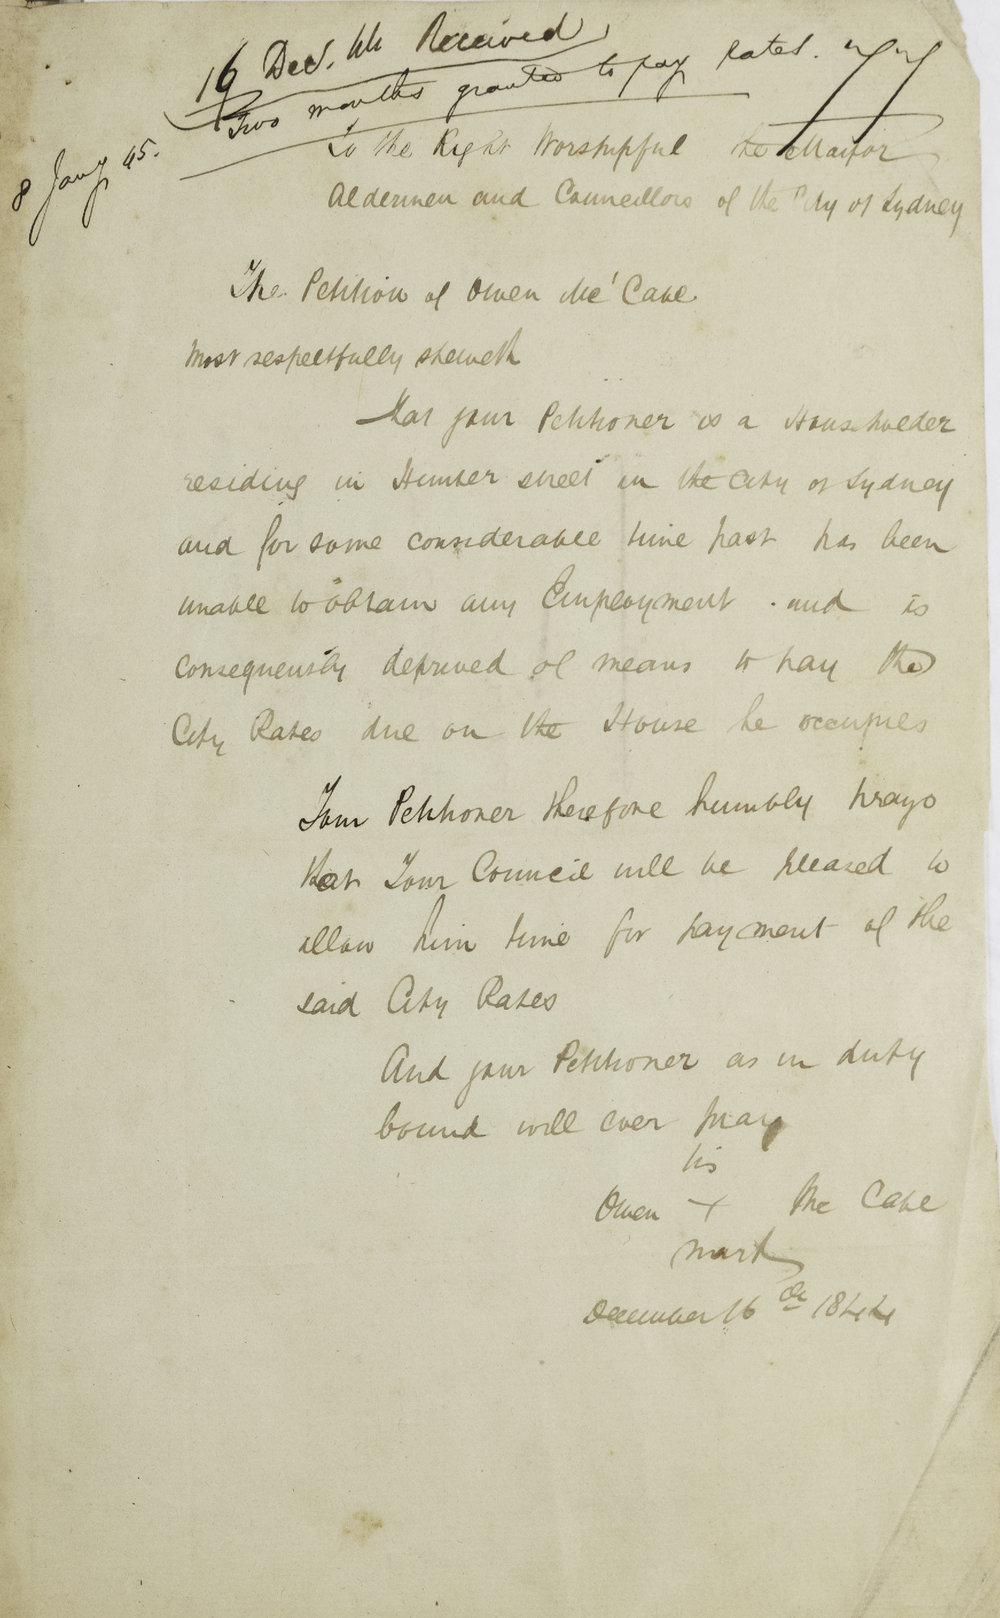 16 Decr. 44 Received
Two months granted to pay Rates.
8 Jany 45.
To the Right Worshipful the Mayor
Aldermen and Councillors of the City of Sydney
The Petition of Owen Mc'Cabe
Most respectfully sheweth
That your Petitioner is a Householder
residing in Hunter street in the City of Sydney
and for some considerable time past has been
unable to obtain any Employment and is
consequently deprived of means to pay the
City Rates due on the House he occupies
Your Petitioner therefore humbly prays
that Your Council will be pleased to
allow him time for payment of the
said City Rates
And your Petitioner as in duty
bound will ever pray
his
Owen + Mc Cabe
mark
December 16th 1844